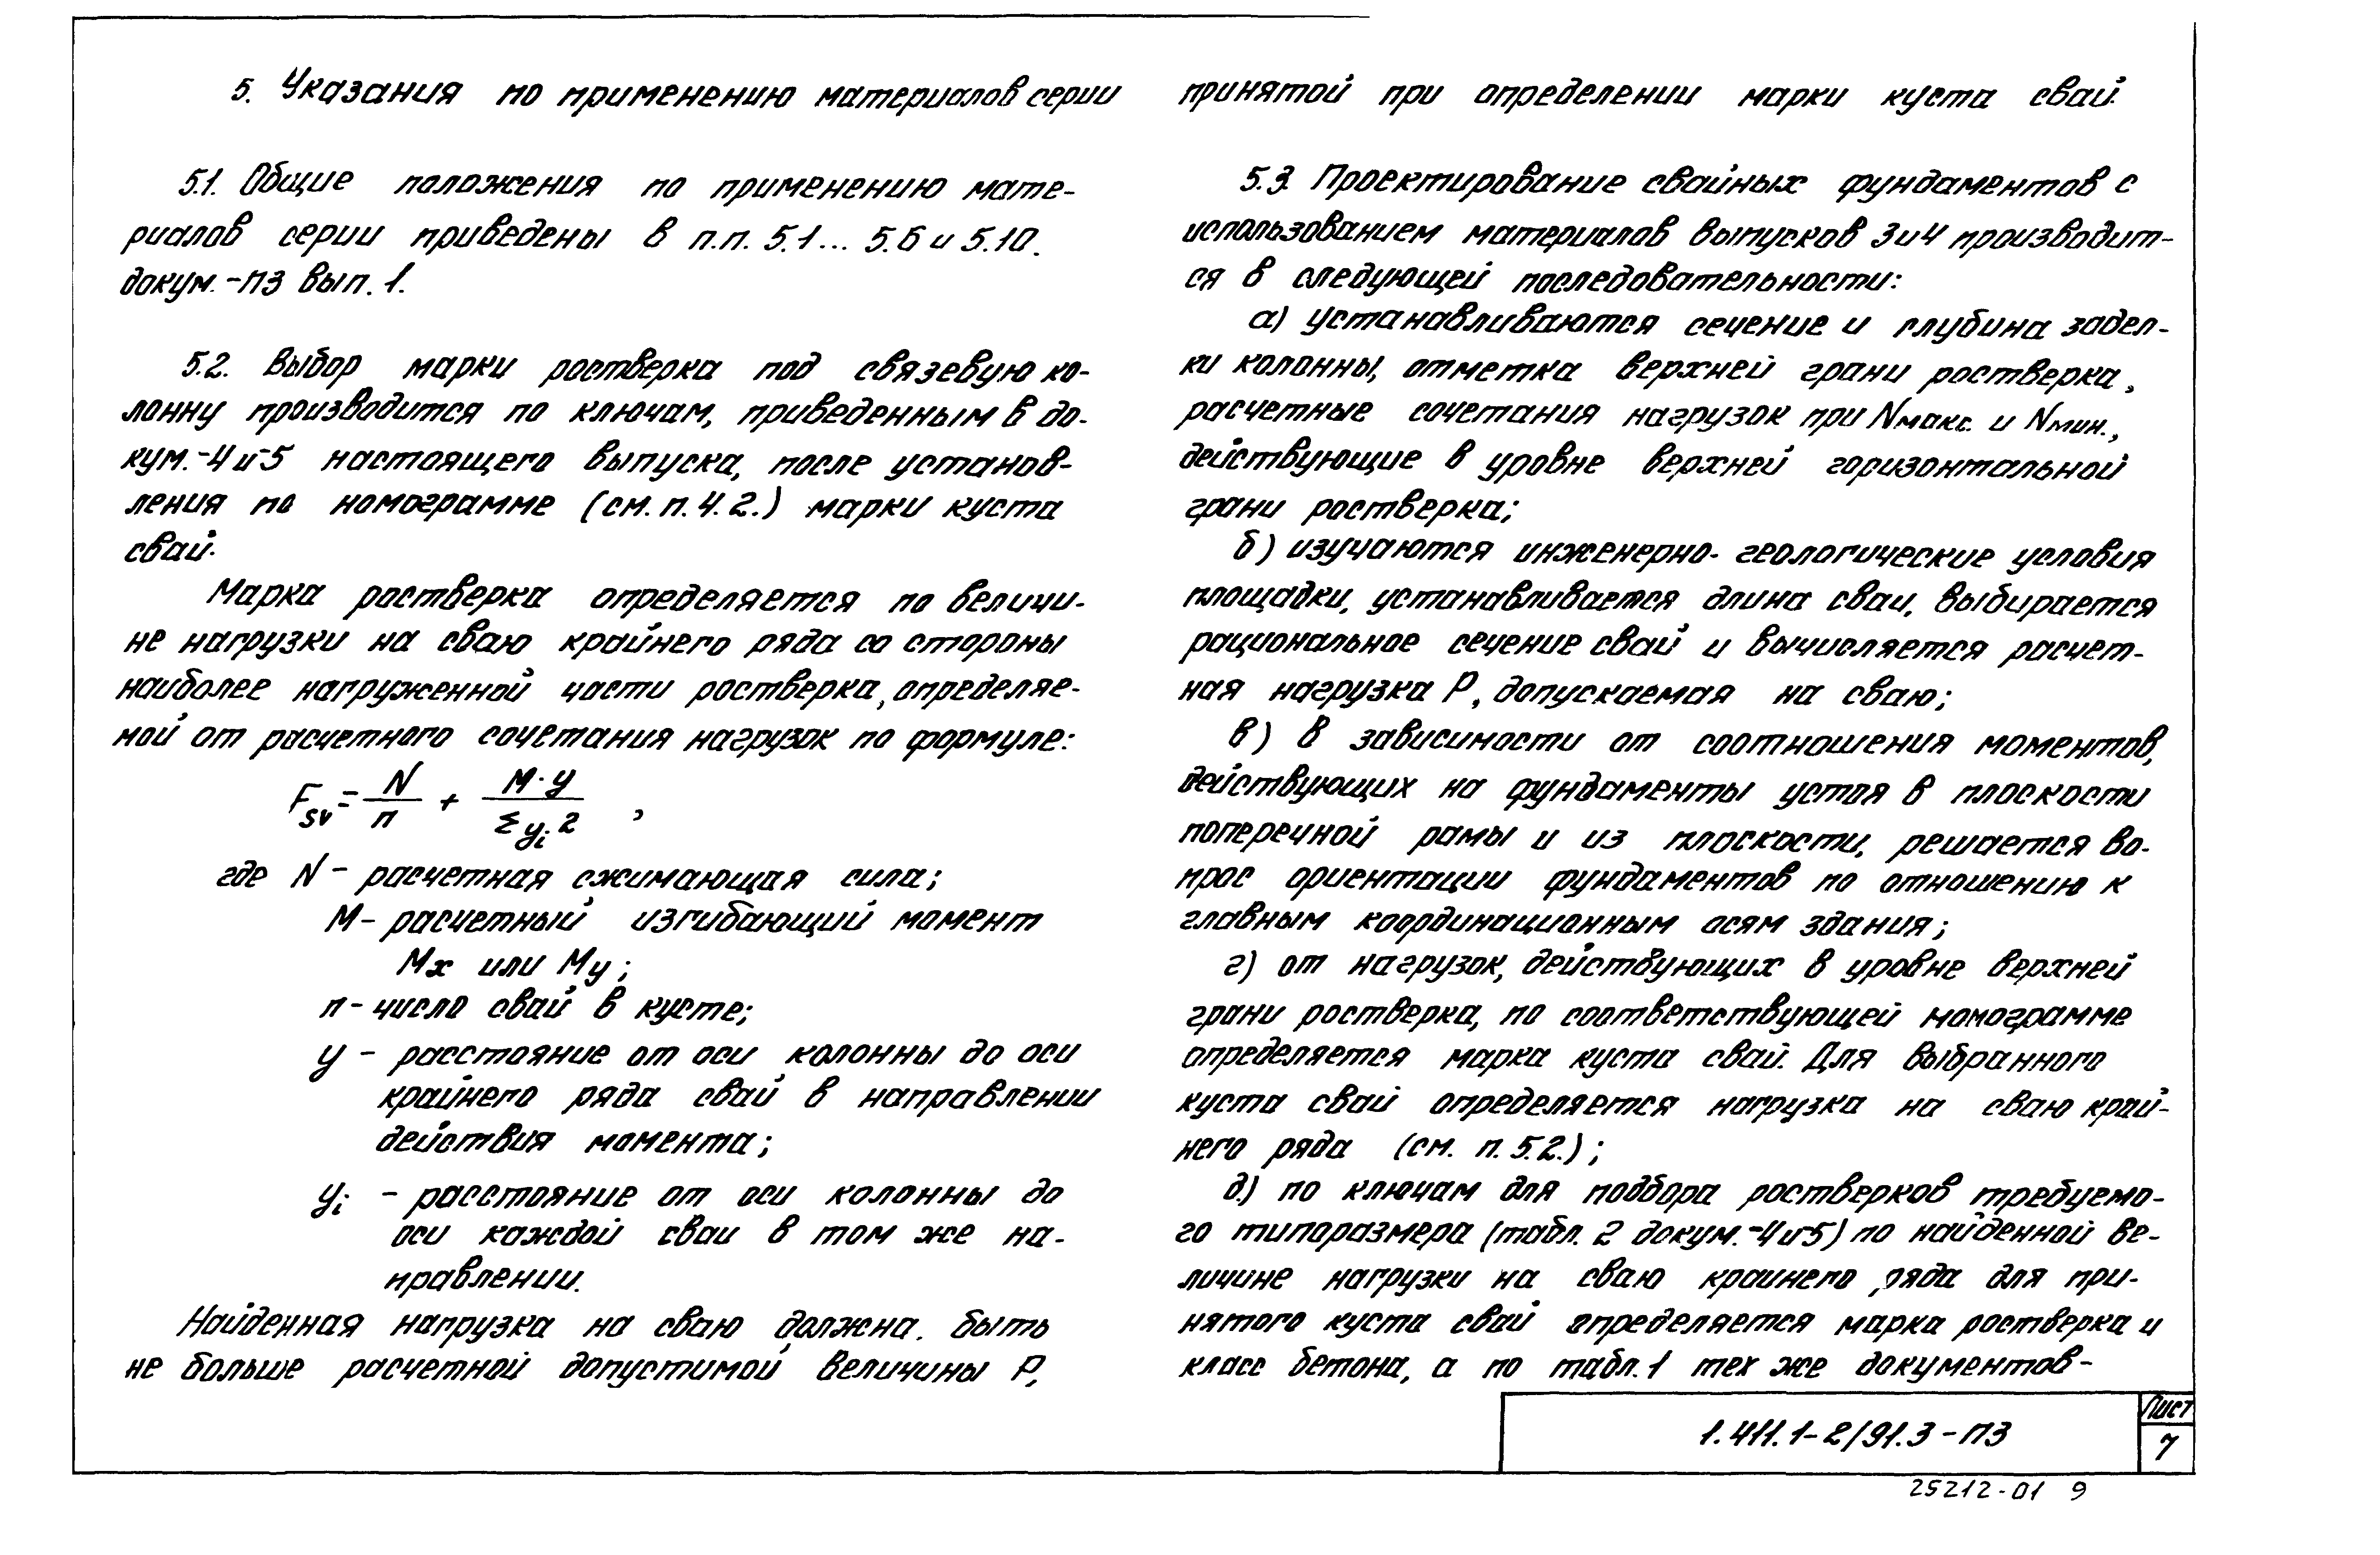 5. Указания по применению материалов серии
5.1. Общие положения по применению мате-
риалов серии приведены в п.п. 5.1... 5.6 и 5.10.
докум.-ПЗ вып. 1.
5.2. Выбор марки ростверка под связевую ко-
лонну производится по ключам, приведенным в до-
кум.-4и-5 настоящего выпуска, после установ-
ления по номограмме (см. п. 4.2.) марки куста
свай.
Марка ростверка определяется по величи-
не нагрузки на сваю крайнего ряда со стороны
наиболее нагруженной части ростверка, определяе-
мой от расчетного сочетания нагрузок по формуле:
Fsv = N/n + M·y/Σyi2 ,
где N - расчетная сжимающая сила;
M - расчетный изгибающий момент
Mx или My;
n - число свай в кусте;
y - расстояние от оси колонны до оси
крайнего ряда свай в направлении
действия момента;
yi - расстояние от оси колонны до
оси каждой сваи в том же на-
правлении.
Найденная нагрузка на сваю должна быть
не больше расчетной допустимой величины P,
принятой при определении марки куста свай.
5.3. Проектирование свайных фундаментов с
использованием материалов выпусков 3и4 производит-
ся в следующей последовательности:
а) устанавливаются сечение и глубина задел-
ки колонны, отметка верхней грани ростверка,
расчетные сочетания нагрузок при Nмакс. и Nмин.,
действующие в уровне верхней горизонтальной
грани ростверка;
б) изучаются инженерно-геологические условия
площадки, устанавливается длина сваи, выбирается
рациональное сечение свай и вычисляется расчет-
ная нагрузка P, допускаемая на сваю;
в) в зависимости от соотношения моментов,
действующих на фундаменты устоя в плоскости
поперечной рамы и из плоскости, решается во-
прос ориентации фундаментов по отношению к
главным координационным осям здания;
г) от нагрузок, действующих в уровне верхней
грани ростверка, по соответствующей номограмме
определяется марка куста свай. Для выбранного
куста свай определяется нагрузка на сваю край-
него ряда (см. п. 5.2.);
д) по ключам для подбора ростверков требуемо-
го типоразмера (табл. 2 докум.-4и-5) по найденной ве-
личине нагрузки на сваю крайнего ряда для при-
нятого куста свай определяется марка ростверка и
класс бетона, а по табл. 1 тех же документов-
1.411.1-2/91.3-ПЗ
Лист
7
25212-01 9